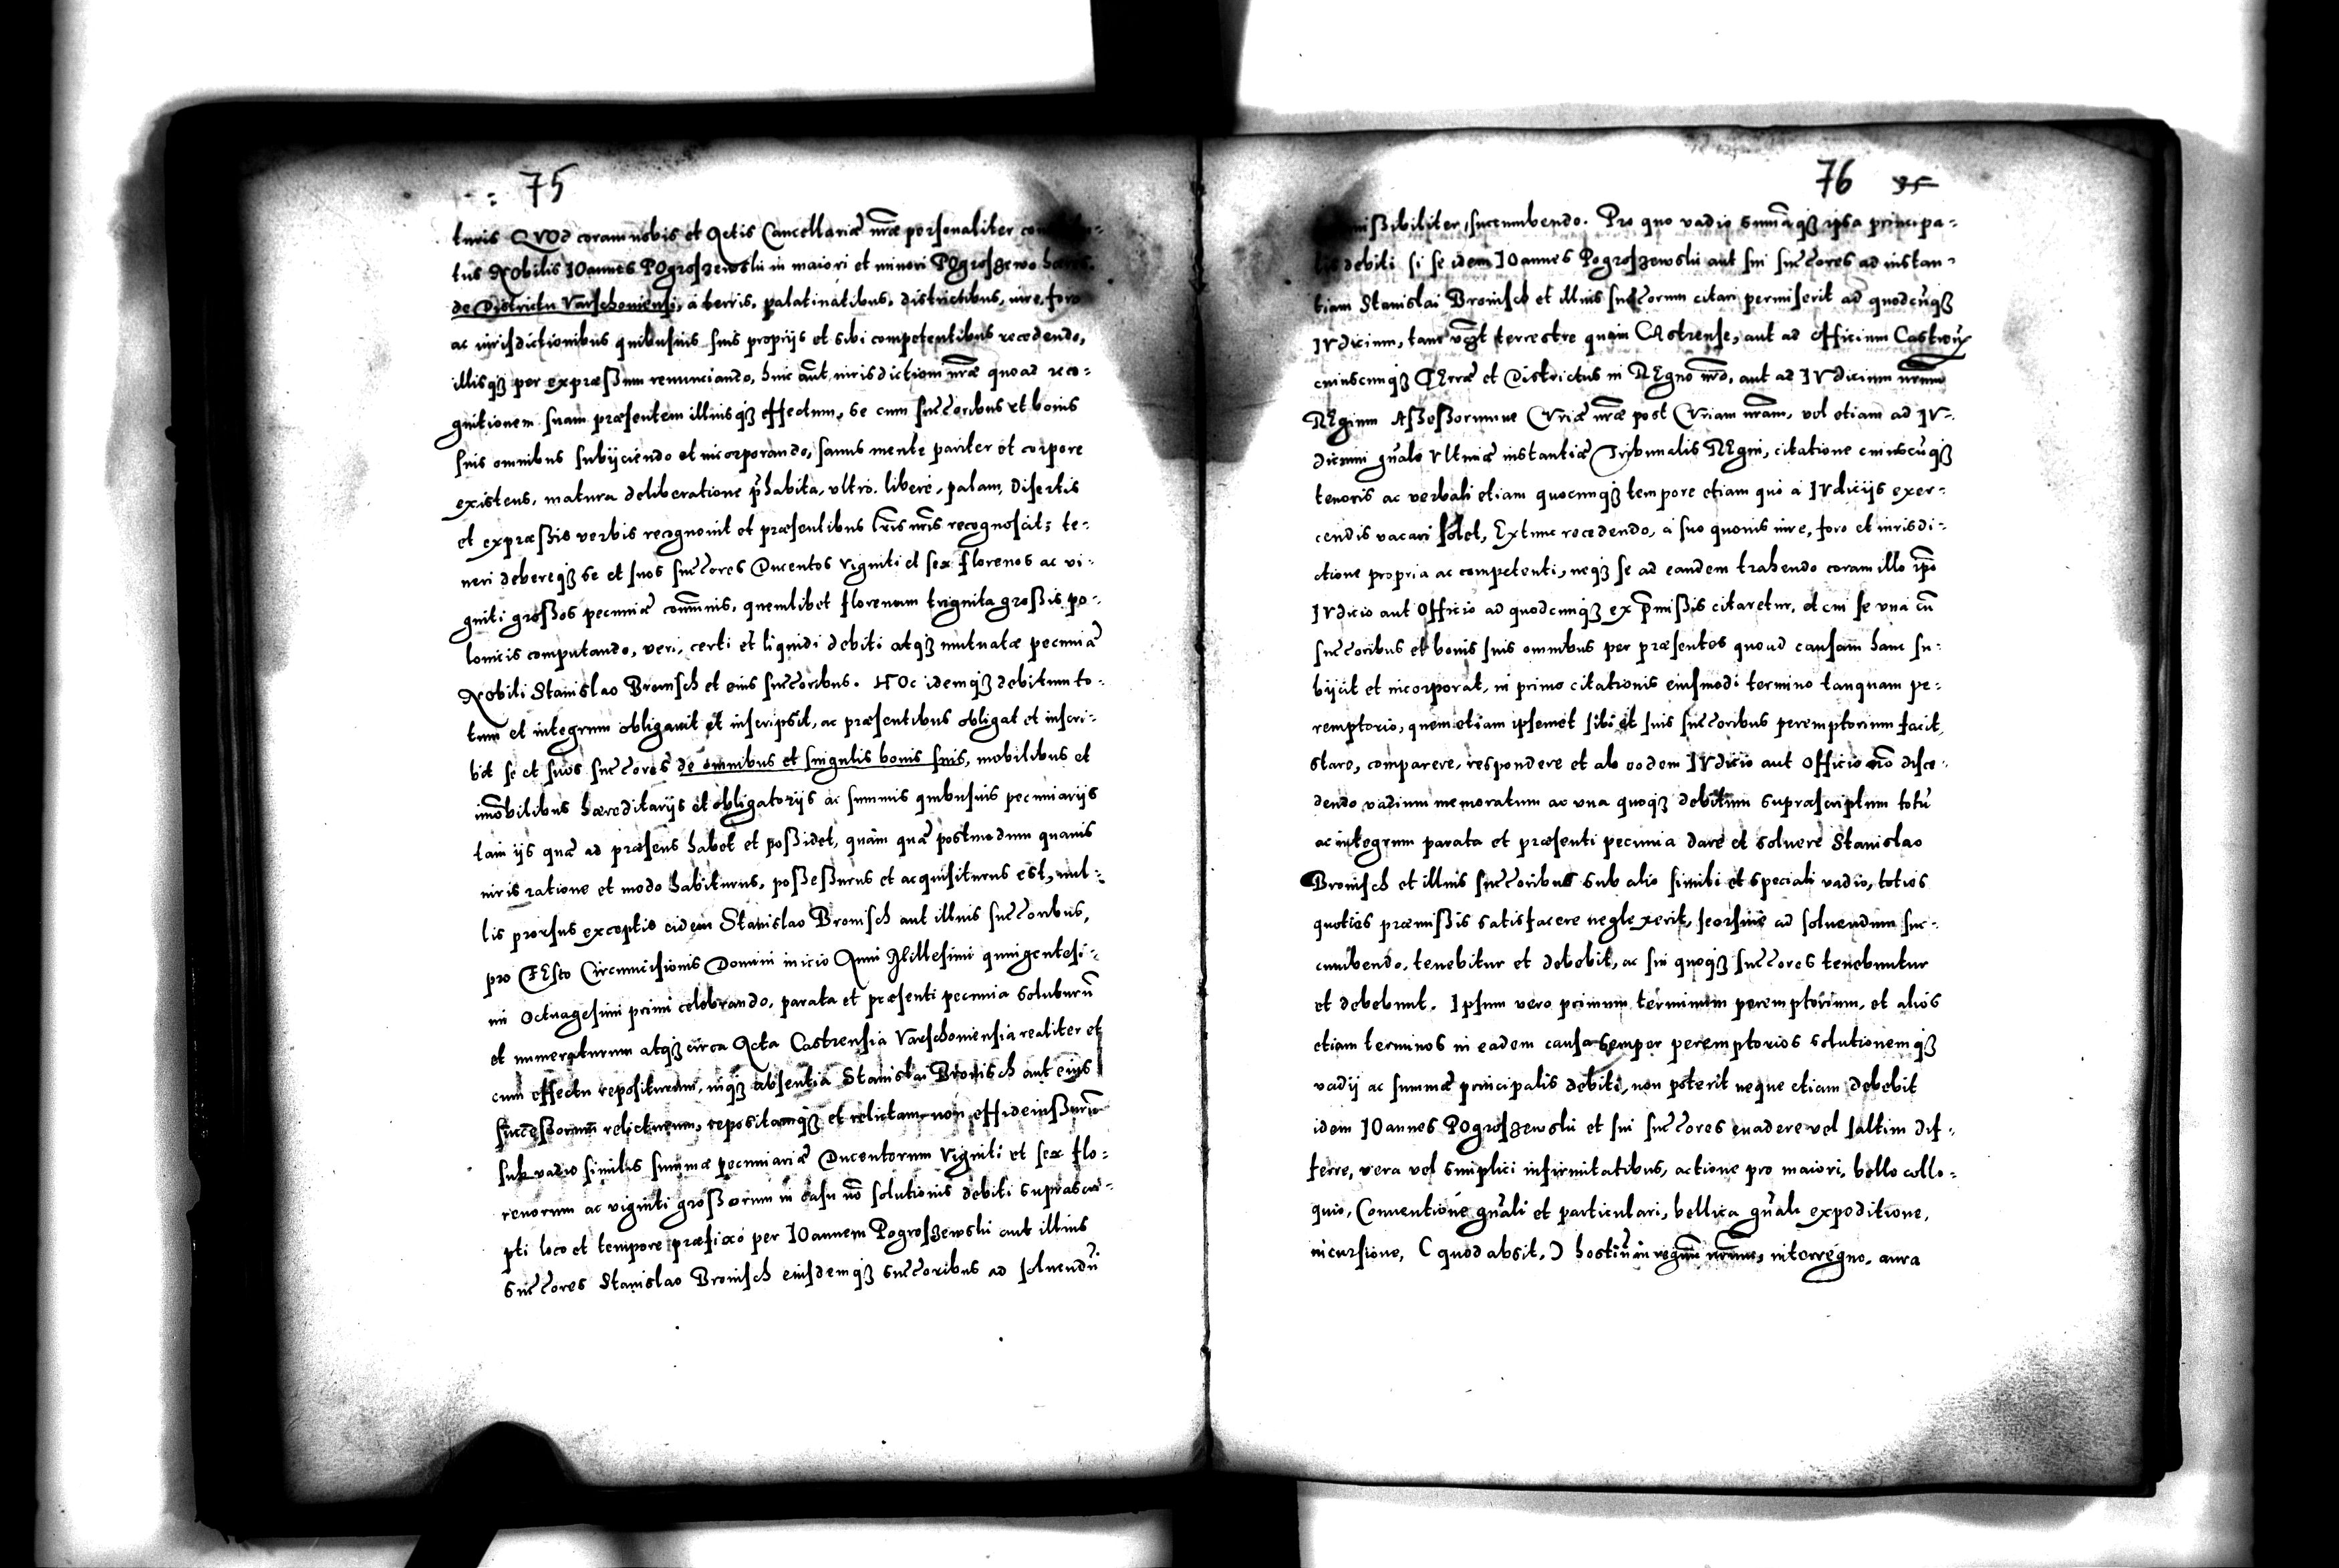 75
turis QVOd coram nobis et Actis Cancellariæ nr̃æ personaliter
tus Nobilis IOannes POgroszewski in maiori et minori POgroszewo hæres.
de Districtu Varschoviensi, a terris, palatinatibus, districtibus, iure, foro
ac iurisdictionibus quibusuis suis proprijs et sibi competentibus recedendo,
illisq3 per expræssum renunciando, huic aũt iurisdictioni nr̃æ quoad reco-
gnitionem suam præsentem illiusq3 effectum, se cum succ̃oribus et bonis
suis omnibus subijciendo et incorporando, sanus mente pariter et corpore
existens, matura deliberatione p̃habita, vltro. libere, palam, disertis
et expræssis verbis recognouit et præsentibus lr̃is nr̃is recognoscit: te-
neri debereq3 se et suos succ̃ores Ducentos viginti et sex florenos ac vi-
ginti grossos pecuniæ com̃unis, quemlibet florenum triginta grossis po-
lonicis computando, veri, certi et liquidi debiti atq3 mutuatæ pecuniæ
Nobili Stanislao Bronisch et eius succ̃oribus. HOc idemq3 debitum to-
tum et integrum obligauit et inscripsit, ac præsentibus obligat et inscri-
bit se et suos succ̃ores de omnibus et singulis bonis suis, mobilibus et
im̃obilibus hæreditarijs et obligatorijs ac summis quibusuis pecuniarijs
tam ijs quæ ad præsens habet et possidet, quam quæ postmodum quauis
iuris ratione et modo habiturus, possessurus et acquisiturus est, nul-
lis prorsus exceptis eidem Stanislao Bronisch aut illius succ̃oribus,
pro FEsto Circumcisionis Domini inicio Anni Millesimi quingentesi-
mi Octuagesimi primi celebrando, parata et præsenti pecunia soluturũ
et numeraturum atq3 circa Acta Castrensia Varschouiensia realiter et
cum effectu repositurum, inq3 absentia Stanislai Bronisch aut eius
successorum relicturum, repositamq3 et relictam non
sub vadio similis summæ pecuniariæ Ducentorum viginti et sex flo-
renorum ac viginti grossorum in casu nõ solutionis debiti suprascri-
pti loco et tempore præfixo per IOannem Pogroszewski aut illius
succ̃ores Stanislao Bronisch eiusdemq3 succ̃oribus ad soluendũ
76
succumbendo. Pro quo vadio sum̃aq3 ipsa principa-
lis debiti si se idem IOannes Pogroszewski aut sui succ̃ores ad instan-
tiam Stanislai Bronisch et illius succ̃orum citari permiserit ad quodcũq3
IVdicium, tam vcz̃t terrestre quam CAstrense, aut ad officium Castroũ
cuiuscunq3 TErræ et Districtus in REgno nr̃o, aut ad IVdicium nr̃um
REgium Assessorumue CVriæ nr̃æ post CVriam nr̃am, vel etiam ad IV-
dicium gñale vltimæ instantiæ Tribunalis REgni, citatione cuiuscũq3
tenoris ac verbali etiam quocunq3 tempore etiam quo a IVdicijs exer-
cendis vacari solet, Extunc recedendo, a suo quouis iure, foro et iurisdi-
ctione propria ac competenti, neq3 se ad eandem trahendo coram illo ip̃o
IVdicio aut Officio ad quodcunq3 ex p̃missis citaretur, et cui se vna cũ
succ̃oribus et bonis suis omnibus per præsentes quoad causam hanc su-
bijcit et incorporat, in primo citationis eiusmodi termino tanquam pe-
remptorio, quem etiam ipsemet sibi et suis succ̃oribus peremptorium facit,
stare, comparere, respondere et ab eodem IVdicio aut Officio nõ disce-
dendo vadium memoratum ac vna quoq3 debitum suprascriptum totũ
ac integrum parata et præsenti pecunia dare et soluere Stanislao
Bronisch et illius succ̃oribus sub alio simili et speciali vadio, toties
quoties præmissis satisfacere neglexerit, seorsiue ad soluendum suc-
cumbendo, tenebitur et debebit, ac sui quoq3 succ̃ores tenebuntur
et debebunt. Ipsum vero primum terminum peremptorium, et alios
etiam terminos in eadem causa semper peremptorios solutionemq3
vadij ac summæ principalis debiti, non poterit neque etiam debebit
idem IOannes POgroszewski et sui succ̃ores euadere vel saltim dif-
ferre, vera vel simplici infirmitatibus, actione pro maiori, bello collo-
quio, Conuentione gñali et particulari, bellica gñali expeditione,
incursione, (quod absit,) hostiũ in regnũ nr̃um, interregno, aura